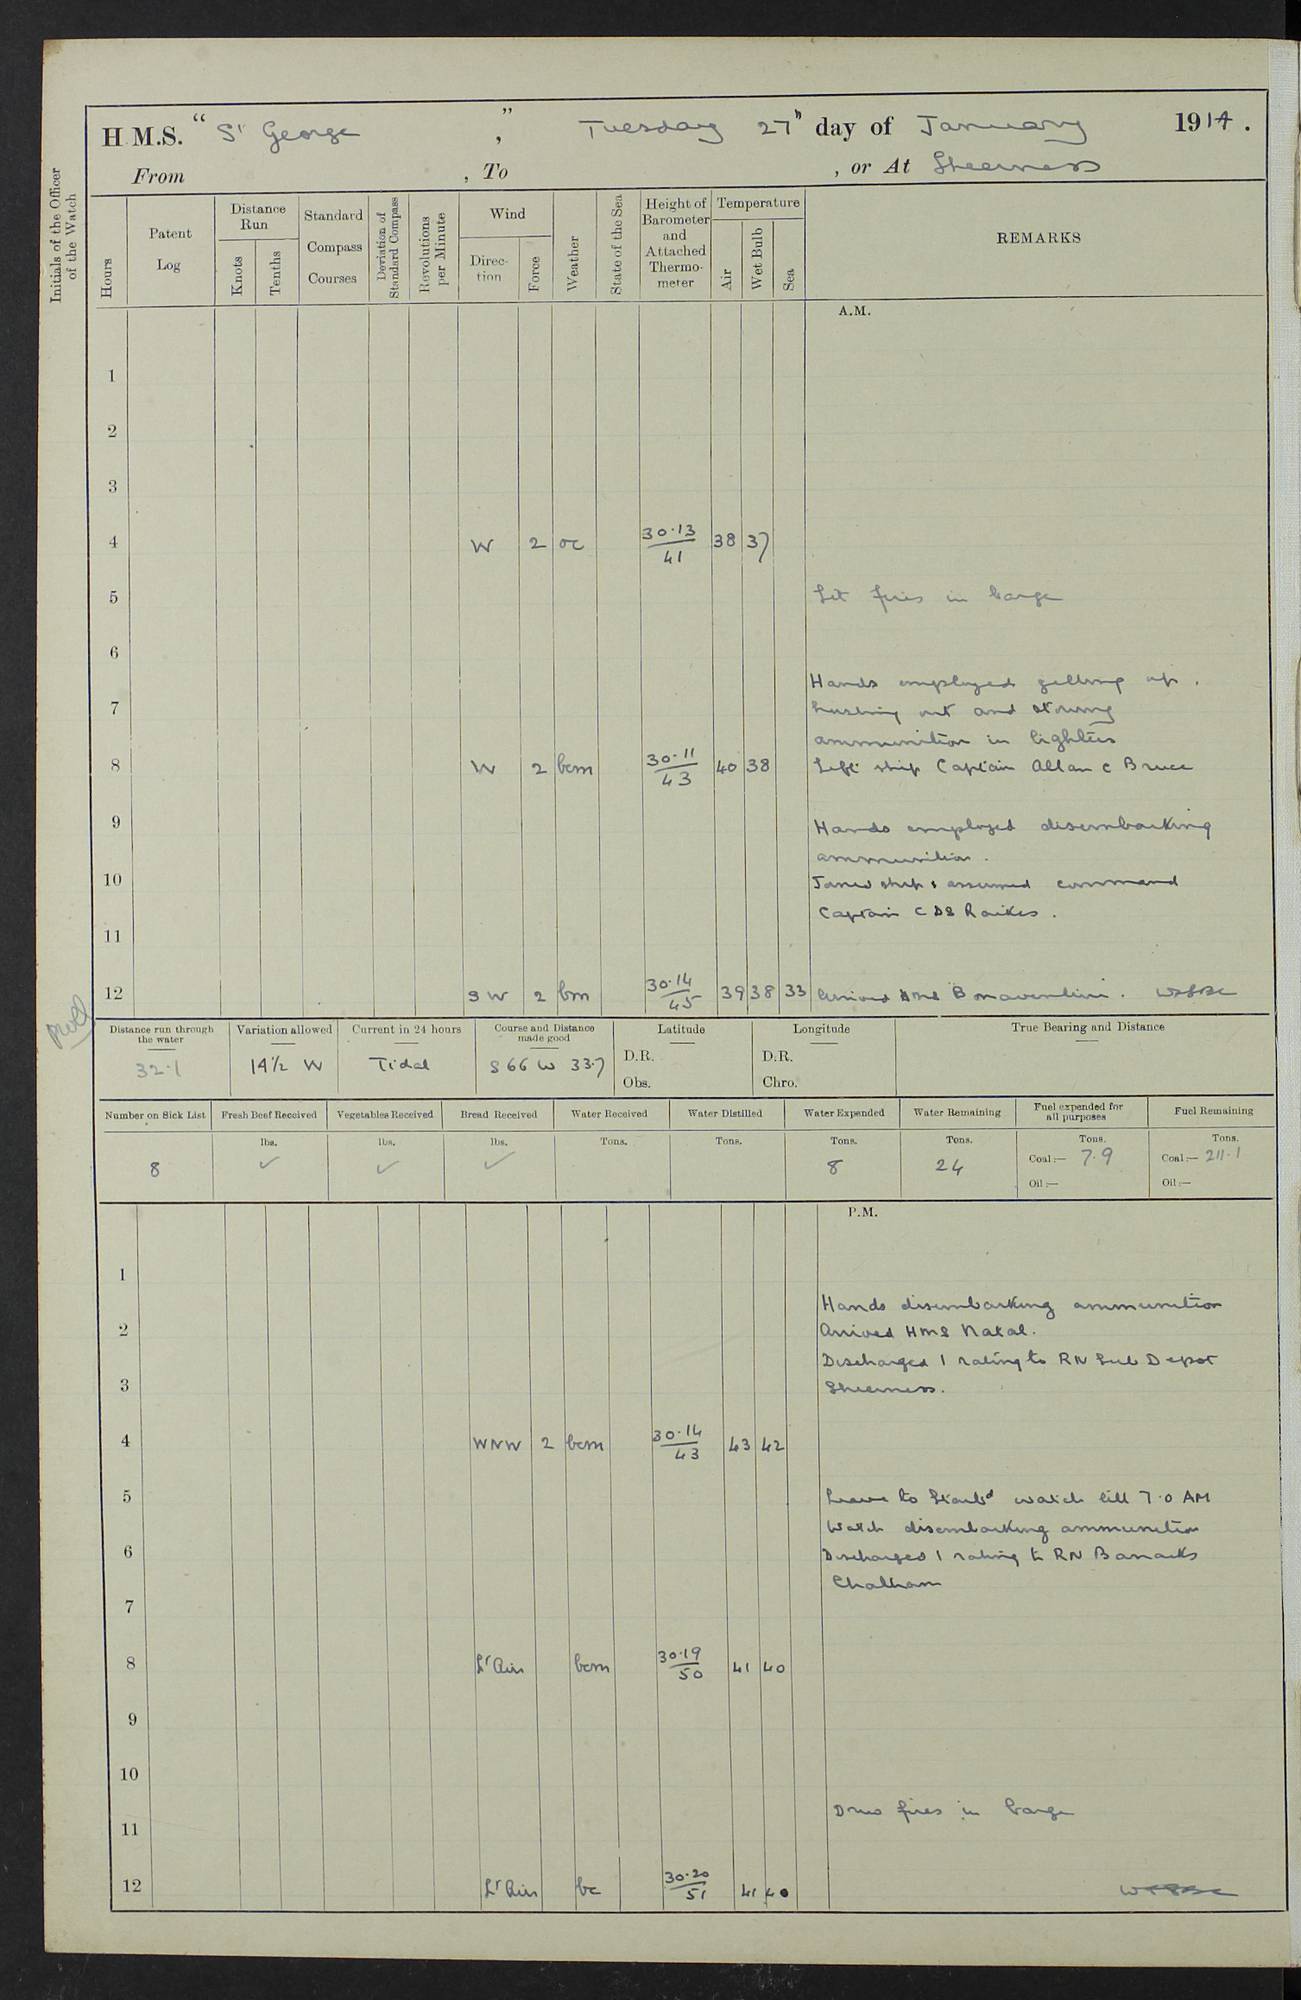 H.M.S. "St George", Tuesday 27th day of January 1914.
From , To , or At Sheerness
Initials of the Officer of the Watch
Hours
Patent Log
Distance Run
Knots
Tenths
Standard Compass Courses
Deviation of Standard Compass
Revolutions per Minute
Wind
Direction
Force
Weather
State of the Sea
Height of Barometer and Attached Thermometer
Temperature
Air
Wet Bulb
Sea
REMARKS
A.M.
1
2
3
4 W 2 oc 30.13 / 41 38 37
5 Lit fires in barge
6
Hands employed getting up.
7 and stowing
ammunition in lighters
8 W 2 bcm 30.11 / 43 40 38 Left ship Captain Allan C Bruce
9 Hands employed disembarking
ammunition.
10 Joined ship & assumed command
Captain C D S Raikes.
11
12 SW 2 bm 30.14 / 45 39 38 33 Arrived HMS Bonaventure.
Distance run through the water 32.1
Variation allowed 14½ W
Current in 24 hours Tidal
Course and Distance made good S 66 W 33.7
Latitude
D.R.
Obs.
Longitude
D.R.
Chro.
True Bearing and Distance
Number on Sick List 8
Fresh Beef Received lbs. ✓
Vegetables Received lbs. ✓
Bread Received lbs. ✓
Water Received Tons.
Water Distilled Tons.
Water Expended Tons. 8
Water Remaining Tons. 24
Fuel expended for all purposes Tons. Coal:— 7.9 Oil:—
Fuel Remaining Tons. Coal:— 211.1 Oil:—
P.M.
1
Hands disembarking ammunition
2 Arrived HMS Natal.
Discharged 1 rating to RN Sub Depot
3 Sheerness.
4 WNW 2 bcm 30.14 / 43 43 42
5 Leave to Starbd watch till 7.0 AM
Watch disembarking ammunition
6 Discharged 1 rating to RN Barracks
Chatham
7
8 Lt Airs bcm 30.19 / 50 41 40
9
10
Drew fires in barge
11
12 Lt Airs bc 30.20 / 51 41 40